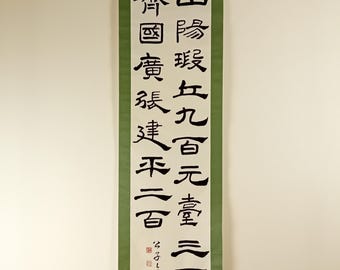 山陽瑕丘九百元臺三百
齊國廣張建平二百